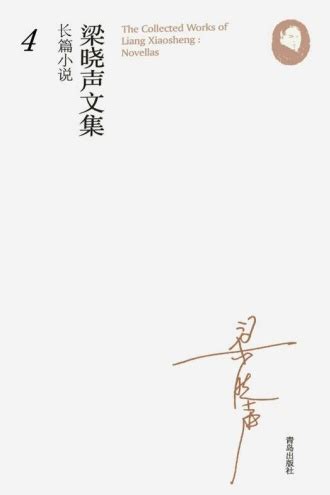 4
梁晓声文集
长篇小说
The Collected Works of
Liang Xiaosheng :
Novellas
梁晓声
青岛出版社